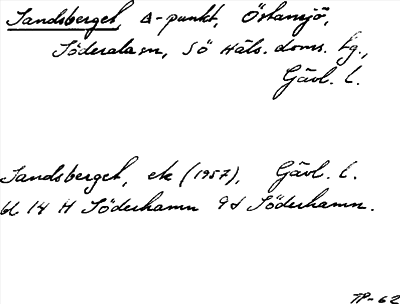 Sandsberget, Δ-punkt, Östansjö,
Söderala sn, Sö Häls. doms. tg.,
Gävl. l.
Sandsberget, ek (1957), Gävl. l.
bl. 14 H Söderhamn 9d Söderhamn.
TP-62